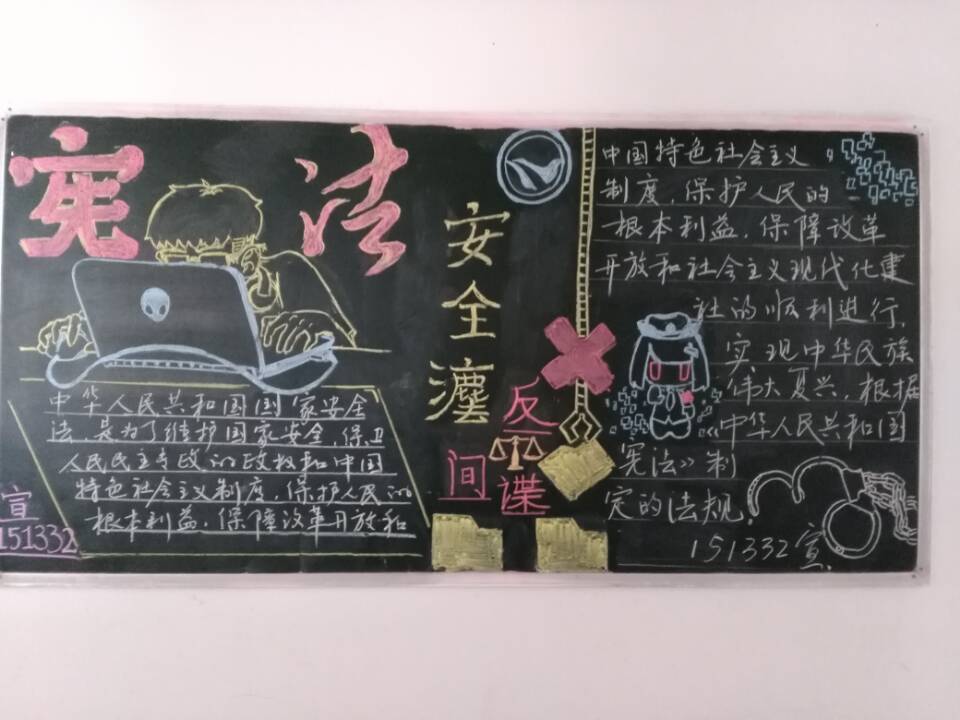 宪法
中华人民共和国国家安全
法 是为了维护国家安全,保卫
人民民主专政的政权和中国
特色社会主义制度,保护人民的
根本利益,保障改革开放和
宣
151332
安全灋
反间谍
中国特色社会主义
制度,保护人民的
根本利益,保障改革
开放和社会主义现代化建
社的顺利进行,
实现中华民族
伟大复兴,根据
《中华人民共和国
宪法》制
定的法规.
151332宣